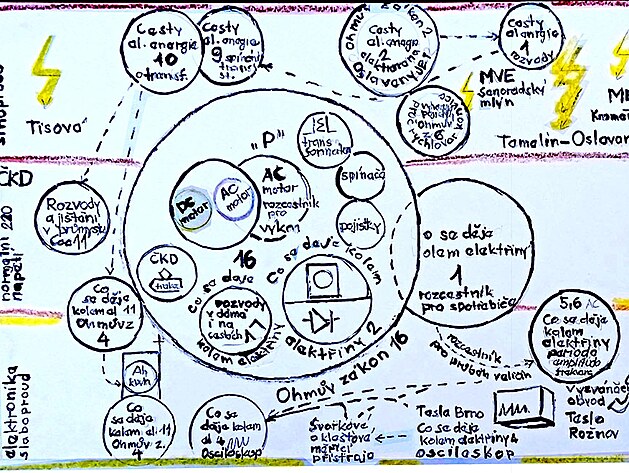 silnoproud
Cesty
al. energie
10
o transf.
Cesty
al. energie
9 spínání
transf.
st.
Ohmův zákon 2
Cesty
al. energie
2
elektrárna
Oslavany
Cesty
al. energie
1
rozvody
Tisová
MVE
Sanoradský
mlýn
Ohmův
z. 6
Tamalín-Oslavan
ČKD
normální 220
napětí
Rozvody
a jištění
v průmyslu
Coa 11
"P"
transformátor
spínača
pojistky
DC
motor
AC
motor
AC
motor
rozcestník
pro
výkon
ČKD
trakce
16
Co se děje
kolem elektřiny
rozvody
v domě
i na
cestách
Co se děje kolem
elektřiny 2
o se děje
olem elektřiny
1
rozcestník
pro spotřebiče
Co se
děje
kolem el 11
Ohmův z
4
5,6 AC
Co se děje
kolem
elektřiny
perioda
amplituda
frekvence
rozcestník
pro průběh veličin
elektronika
slaboproud
Ah
kWh
Co
se děje
kolem el. 11
Ohmův z.
4
Co se
děje kolem
el 4
Osciloskop
Ohmův zákon 16
Svorkové
o klešťové
měřicí
přístroje
Tesla Brno
Co se děje
kolem elektřiny 4
osciloskop
Vyzvaněcí
obvod
Tesla
Rožnov